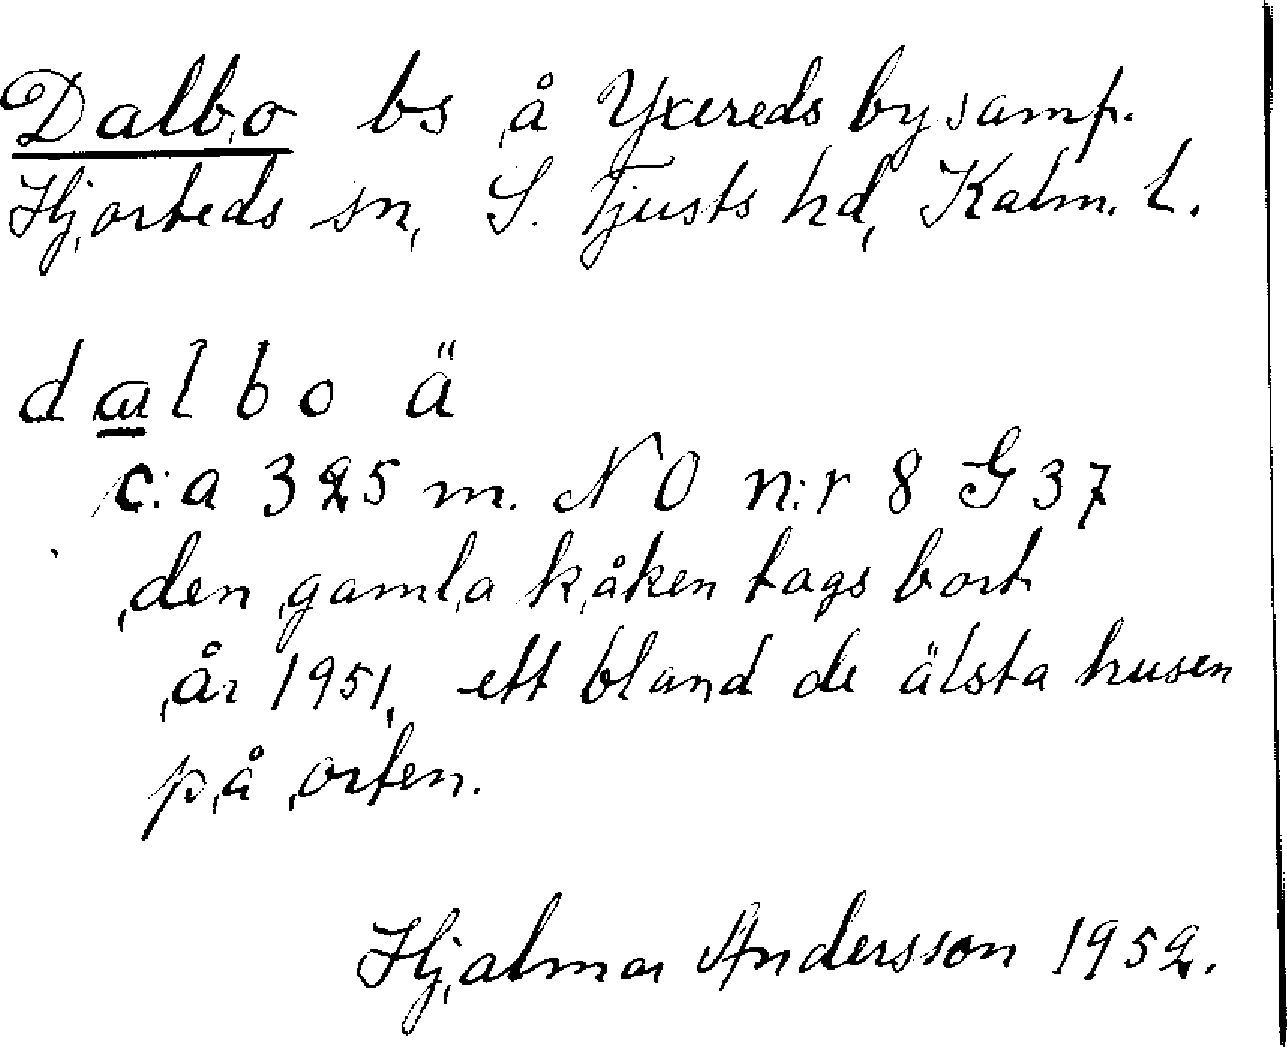 Dalbo bs å Yxereds bysamf.
Hjorteds sn, S. Tjusts hd, Kalm. l.
dalbo ä
c:a 325 m. NO n:r 8 G 37
den gamla kåken tags bort
år 1951, ett bland de älsta husen
på orten.
Hjalmar Andersson 1952.